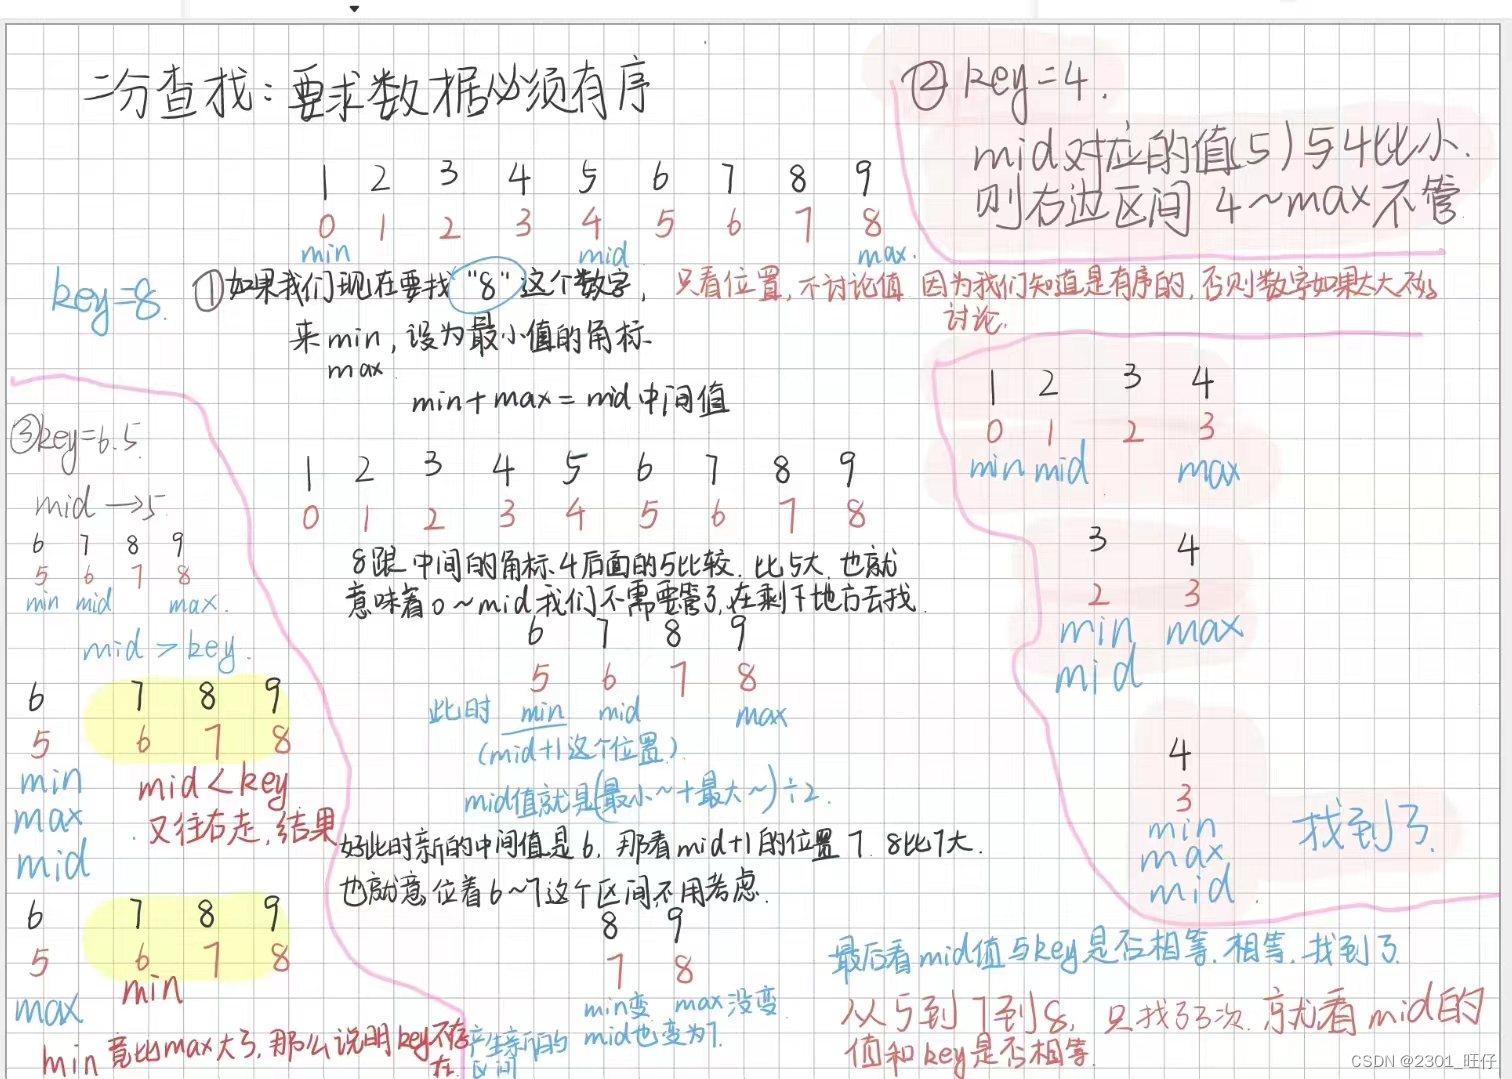 二分查找：要求数据必须有序
1 2 3 4 5 6 7 8 9
0 1 2 3 4 5 6 7 8
min mid max
key=8.
①如果我们现在要找"8"这个数字，只看位置，不讨论值 因为我们知道是有序的，否则数字如果太大不好
讨论.
来min，设为最小值的角标
max
min+max=mid中间值
1 2 3 4 5 6 7 8 9
0 1 2 3 4 5 6 7 8
8跟中间的角标4后面的5比较. 比5大. 也就
意味着0~mid我们不需要管了,在剩下地方去找.
6 7 8 9
5 6 7 8
此时 min mid max
(mid+1这个位置)
mid值就是(最小~+最大~)÷2.
好此时新的中间值是6. 那看mid+1的位置7. 8比7大.
也就意位着6~7这个区间不用考虑.
8 9
7 8
min变 max没变.
产生新的 mid也变为7.
区间
②key=4.
mid对应的值(5)与4比小.
则右边区间4~max不管
1 2 3 4
0 1 2 3
min mid max
3 4
2 3
min max
mid
4
3
min
max
mid.
找到了.
最后看mid值与key是否相等. 相等. 找到了
从5到7到8, 只找了3次. 就看mid的
值和key是否相等.
③key=6.5.
mid→5
6 7 8 9
5 6 7 8
min mid max.
mid>key.
6 7 8 9
5 6 7 8
min mid<key
max .又往右走,结果
mid
6 7 8 9
5 6 7 8
max min
min竟比max大了,那么说明key不存
在.
CSDN @2301_旺仔